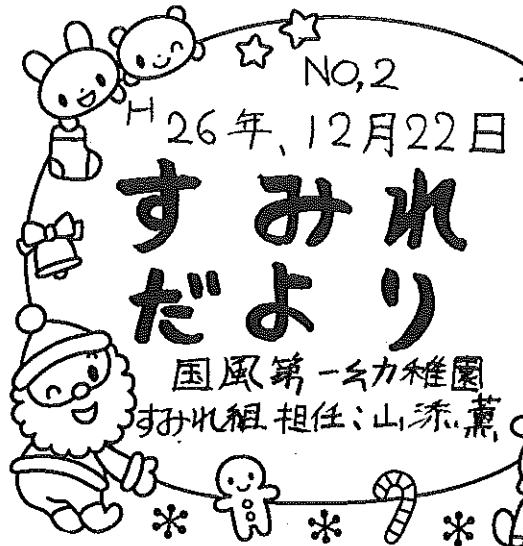 NO,2
H26年、12月22日
すみれ
だより
国風第一幼稚園
すみれ組 担任:山添 薫